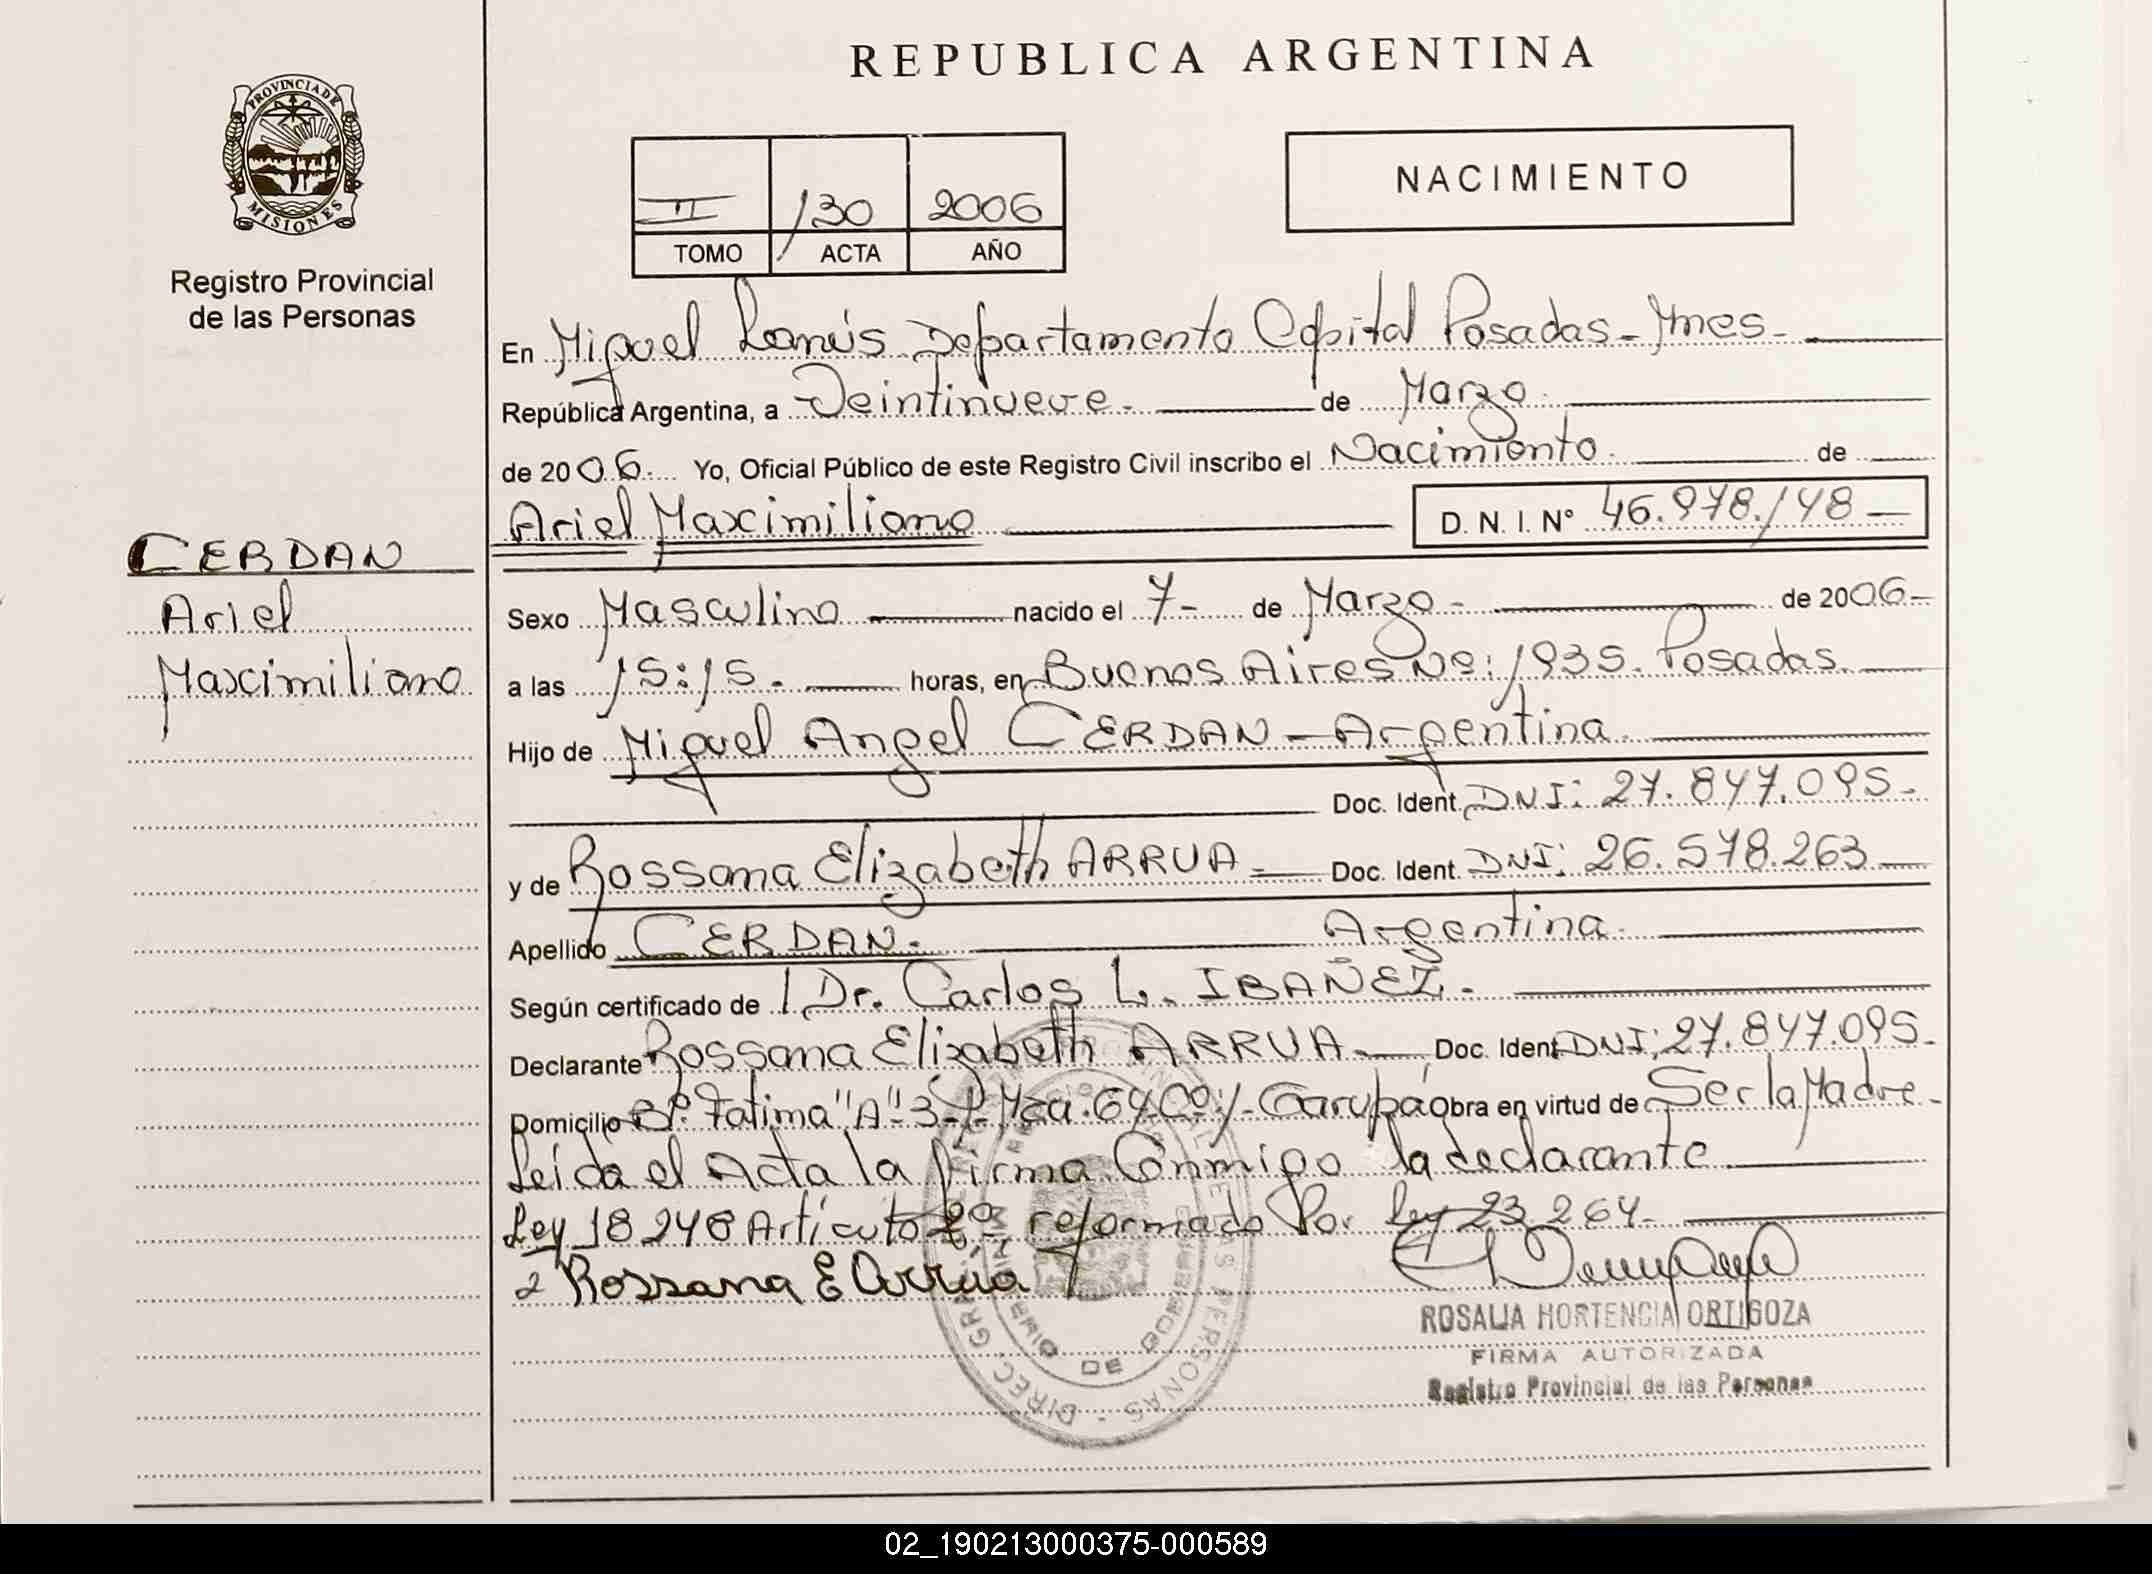 REPUBLICA ARGENTINA
PROVINCIA DE MISIONES
Registro Provincial
de las Personas
II 130 2006
TOMO ACTA AÑO
NACIMIENTO
En Miguel Lanús Departamento Capital Posadas - Mnes -
República Argentina, a Veintinueve. de Marzo.
de 2006. Yo, Oficial Público de este Registro Civil inscribo el Nacimiento. de
Ariel Maximiliano D. N. I. Nº 46.978.148 -
CERDAN
Ariel
Maximiliano
Sexo Masculino nacido el 7 - de Marzo - de 2006 -
a las 15:15. horas, en Buenos Aires Nº: 1935. Posadas.
Hijo de Miguel Angel CERDAN - Argentina.
Doc. Ident. DNI: 27.847.095 -
y de Rossana Elizabeth ARRUA - Doc. Ident. DNI: 26.578.263
Apellido CERDAN. Argentina.
Según certificado de Dr. Carlos L. IBAÑEZ.
Declarante Rossana Elizabeth ARRUA Doc. Ident DNI: 27.847.095.
Domicilio Bº Fatima "A" 3 Mza. 64 Garupá Obra en virtud de Ser la Madre -
Leída el Acta la firma Conmigo la declarante
Ley 18 248 Artículo reformado Por Ley 23 264 -
Rossana E Arrua
ROSALIA HORTENCIA ORTIGOZA
FIRMA AUTORIZADA
Registro Provincial de las Personas
02_190213000375-000589